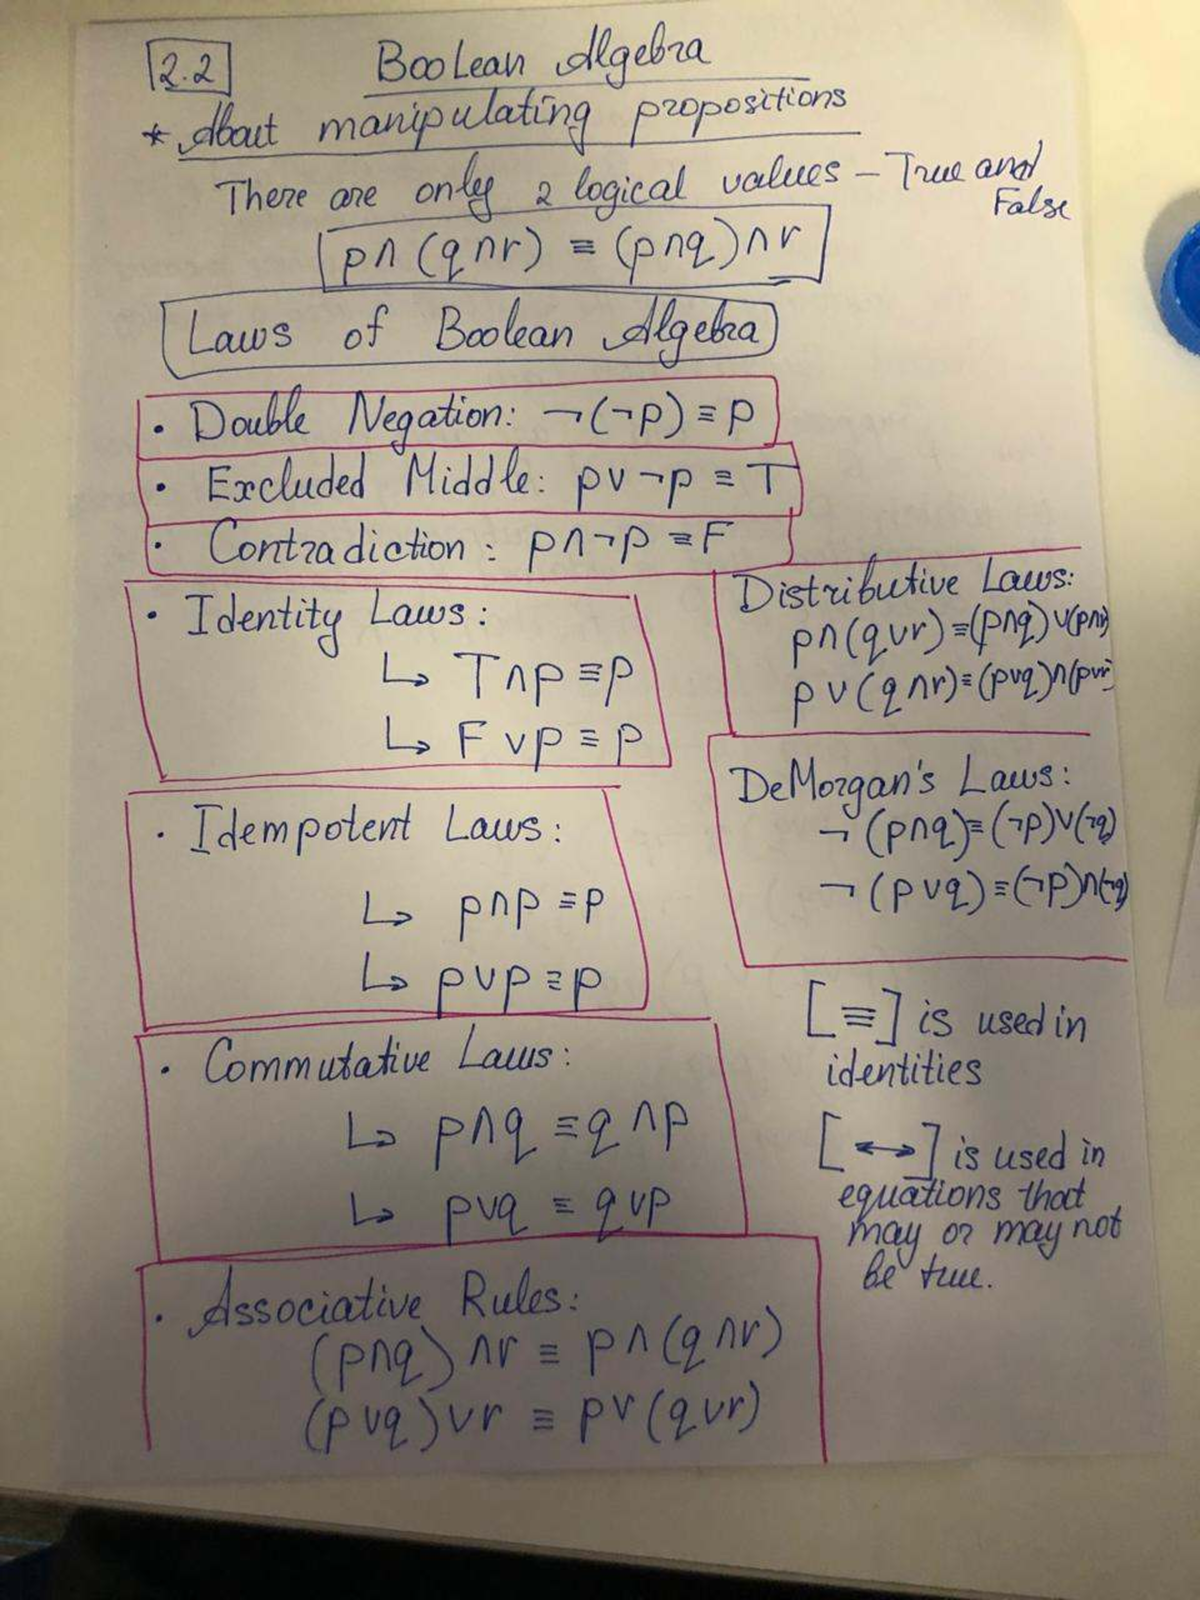 2.2 Boolean Algebra
* About manipulating propositions
There are only 2 logical values – True and
False
p∧(q∧r) ≡ (p∧q)∧r
Laws of Boolean Algebra
• Double Negation: ¬(¬p) ≡ p
• Excluded Middle: p∨¬p ≡ T
• Contradiction: p∧¬p ≡ F
• Identity Laws:
↳ T∧p ≡ p
↳ F∨p ≡ p
• Idempotent Laws:
↳ p∧p ≡ p
↳ p∨p ≡ p
• Commutative Laws:
↳ p∧q ≡ q∧p
↳ p∨q ≡ q∨p
• Associative Rules:
(p∧q)∧r ≡ p∧(q∧r)
(p∨q)∨r ≡ p∨(q∨r)
Distributive Laws:
p∧(q∨r) ≡ (p∧q)∨(p∧r)
p∨(q∧r) ≡ (p∨q)∧(p∨r)
DeMorgan's Laws:
¬(p∧q) ≡ (¬p)∨(¬q)
¬(p∨q) ≡ (¬p)∧(¬q)
[≡] is used in
identities
[↔] is used in
equations that
may or may not
be true.